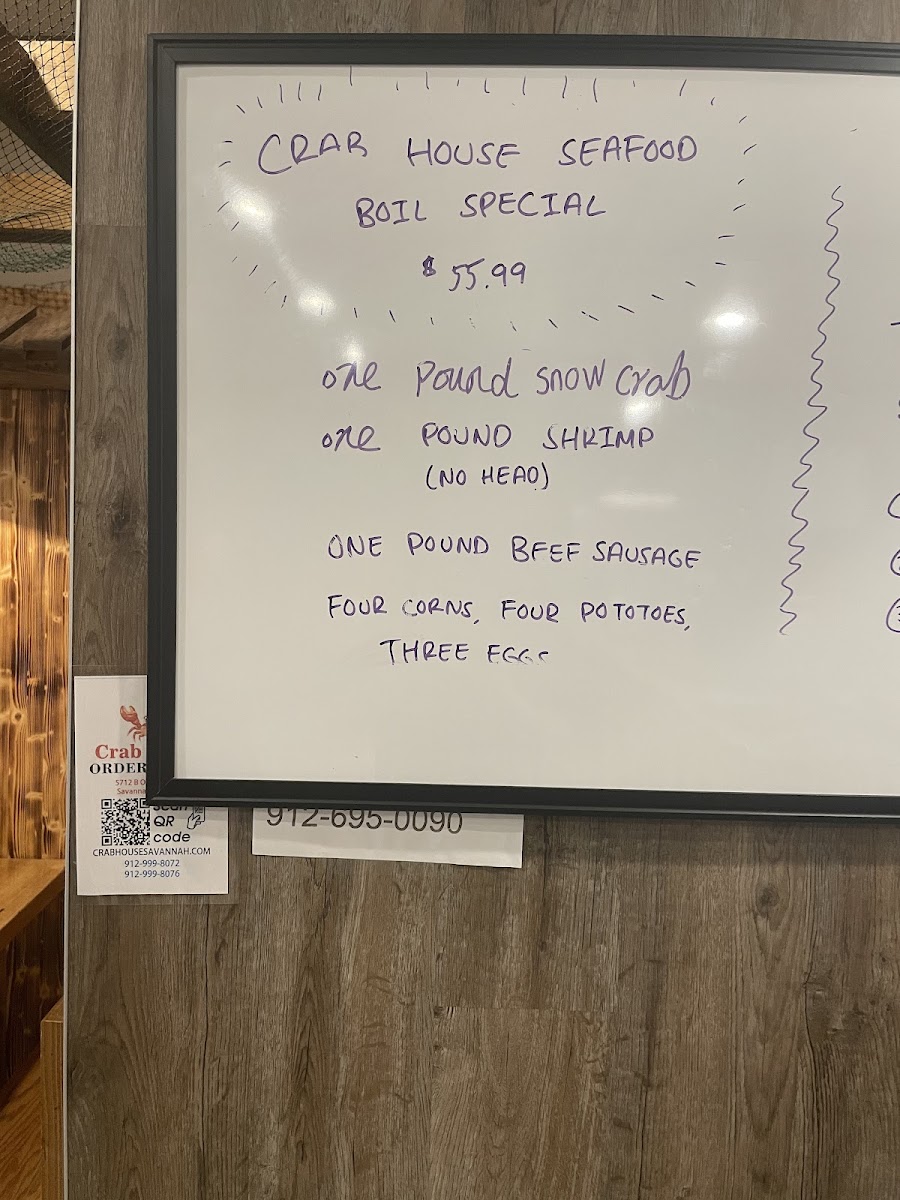 CRAB HOUSE SEAFOOD
BOIL SPECIAL
$ 55.99
one pound snow crab
one POUND SHRIMP
(NO HEAD)
ONE POUND BEEF SAUSAGE
FOUR CORNS, FOUR POTOTOES,
THREE EGGS
Crab
ORDER
5712 B
Savanna
scan
QR
code
CRABHOUSESAVANNAH.COM
912-999-8072
912-999-8076
912-695-0090